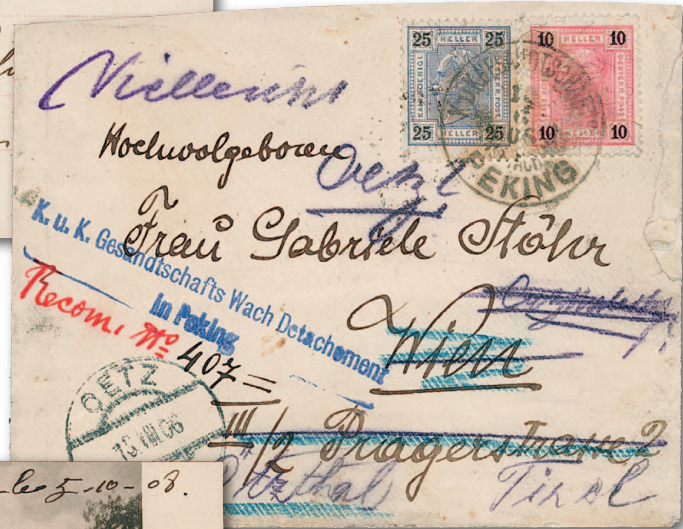 25 HELLER 25
25 HELLER 25
10 HELLER 10
10 HELLER 10
PEKING
Hochwolgeboren
Oetz
Frau Gabriele Stöhr
K. u. K. Gesandtschafts Wach Detachement
in Peking
Recom. No
407=
Wien
III/2 Pragerstrasse 2
Ötzthal Tirol
OETZ
15 VIII 06
5-10-08.